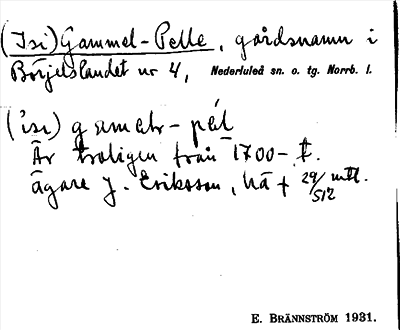 (Isi) Gammel-Pelle, gårdsnamn i
Börjelslandet nr 4, Nederluleå sn. o. tg. Norrb. l.
('isi) gamεlv-pεl
Är troligen från 1700-t.
ägare J. Eriksson, 29/512 mtl.
E. BRÄNNSTRÖM 1931.